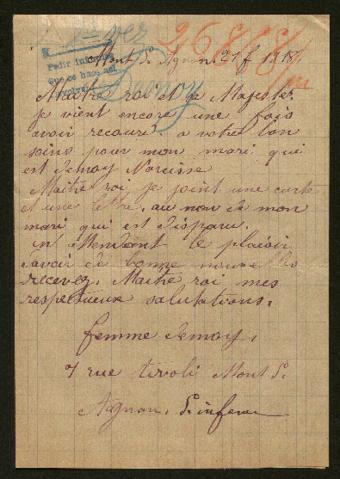 1ª vez
26868/
Pedir informe
Mont St Agnan, 21 f 1918
Demoy
Maitre roi et de Majester
Je vient encore une fois
avoir recours a votre bon
soins pour mon mari qui
est Demoy Narcisse
Maitre roi, je joint une carte
et une lettre, au nom de mon
mari qui est disparu.
en Attendant le plaisir
davoir de bonne nouvelles
recevez, Maitre roi, mes
respectueux salutations.
femme Demoy,
7 rue tivoli Mont St
Aignan. S. infer